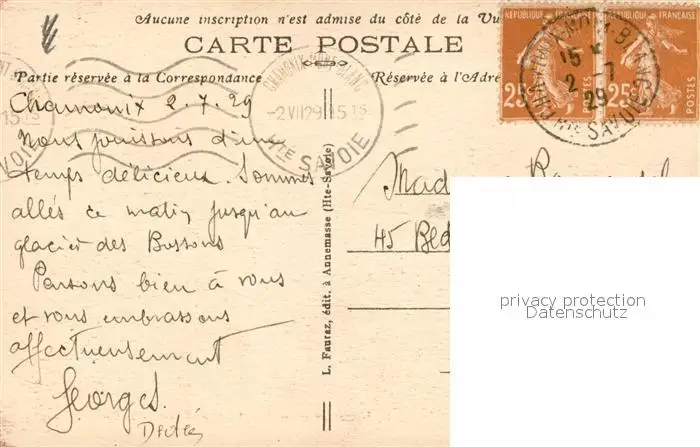 Aucune inscription n'est admise du côté de la Vu
CARTE POSTALE
Partie réservée à la Correspondance
Réservée à l'Adre
RÉPUBLIQUE FRANÇAISE
25c
POSTES
RÉPUBLIQUE FRANÇAISE
25c
POSTES
CHAMONIX-MONT-BLANC
-2 VII 29 15 15
Hte SAVOIE
CHAMONIX-MONT-BLANC
15
2-7
29
Hte SAVOIE
Chamonix 2.7.29
Nous jouissons d'un
temps délicieux. Sommes
allés ce matin jusqu'au
glacier des Bossons
Pensons bien à vous
et vous embrassons
affectueusement
Georges
Mad
45
L. Fauraz, édit. à Annemasse (Hte-Savoie)
privacy protection
Datenschutz